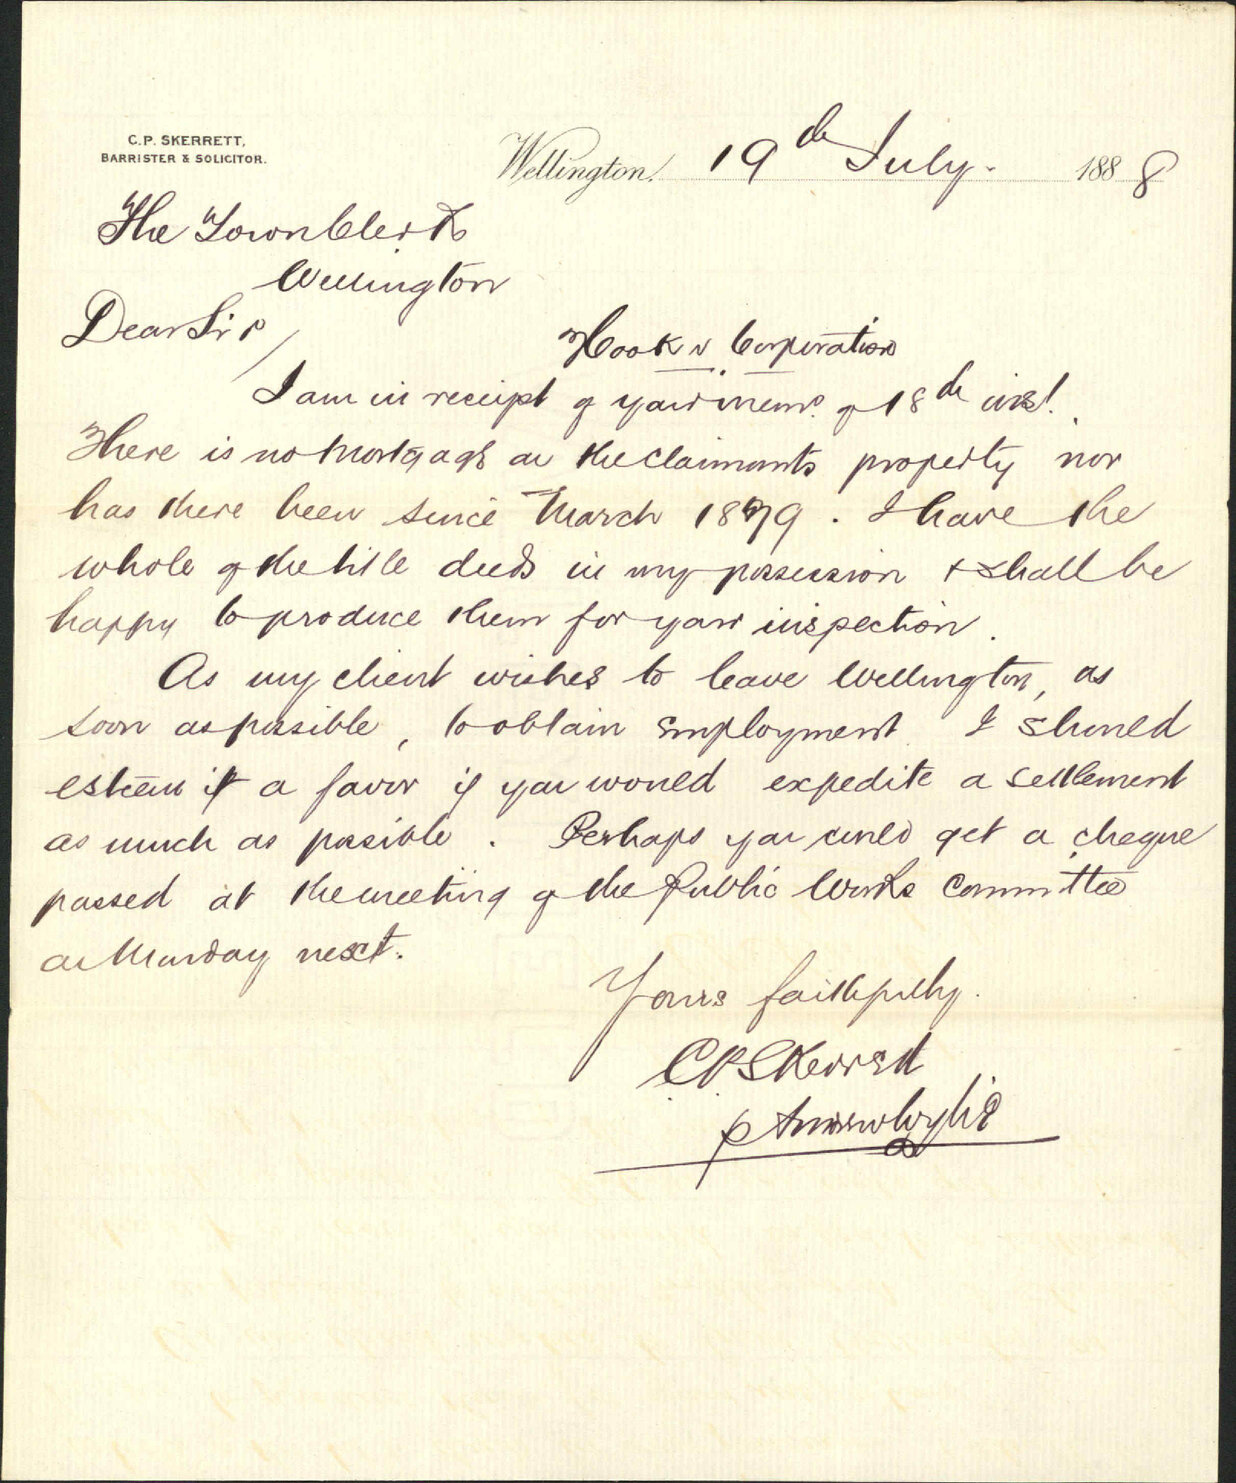 C.P. SKERRETT,
BARRISTER & SOLICITOR.
Wellington. 19th July. 1888
The Town Clerk
Wellington
Dear Sir,
Hook v Corporation
I am in receipt of your memo. of 18th inst.
There is no mortgage on the claimants property nor
has there been since March 1879. I have the
whole of the title deeds in my possession & shall be
happy to produce them for your inspection.
As my client wishes to leave Wellington, as
soon as possible, to obtain employment I should
esteem it a favor if you would expedite a settlement
as much as possible. Perhaps you could get a cheque
passed at the meeting of the Public Works Committee
on Monday next.
Yours faithfully.
C.P. Skerrett
p Andrew Wylie